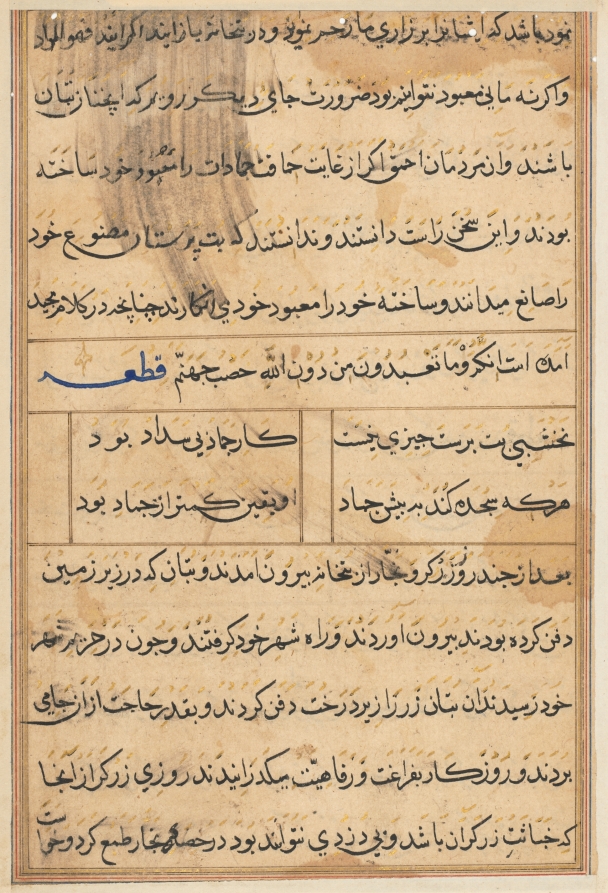 نمود باشد که ایشانرا بر زاری ما رحم نمود و در بتخانه باز ایند اکر ایند فهو المراد
واکرنه ما بی معبود نتوانیم بود ضرورت جای دیکر رویم که اینجا از بتان
باشند و ان مردمان احمق اکر از غایت حماقت جمادات را معبود خود ساخته
بودند و این سخن راست دانستند و ندانستند که بت پرستان مصنوع خود
را صانع میدانند و ساخته خود را معبود خود می انکارند چنانچه در کلام مجید
امده است انکم وما تعبدون من دون الله حصب جهنم قطعه
نخشبی بت پرست چیزی نیست کار جماد بی سداد بود
هرکه سجده کند به پیش جماد او یقین کمتر از جماد بود
بعد از چند روز زرکر و نجار از بتخانه بیرون امدند و بتان که در زیر زمین
دفن کرده بودند بیرون اوردند و راه شهر خود کرفتند و چون در حریم شهر
خود رسیدند ان بتان زر را زیر درخت دفن کردند و بقدر حاجت از ان جا می
بردند و روزکار بفراغت و رفاهیت میکذرانیدند روزی زرکر از انجا
که خباثت زرکران باشد و بی دزدی نتوانند بود در حصه نجار طمع کرد و خواست